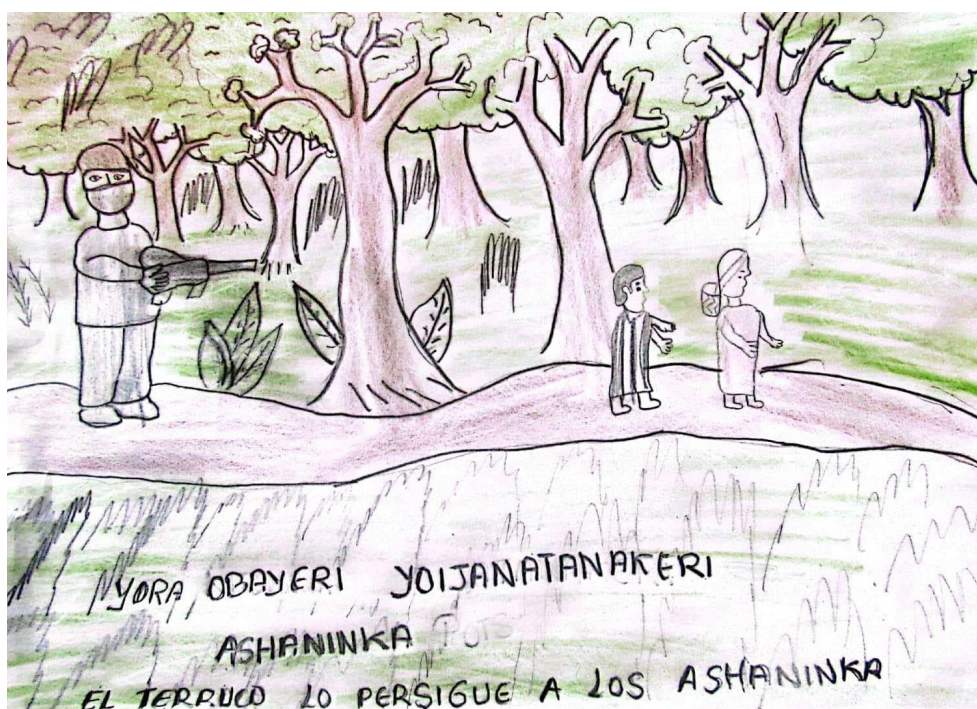 YORA OBAYERI YOIJANATANAKERI
ASHANINKA
EL TERRUCO LO PERSIGUE A LOS ASHANINKA